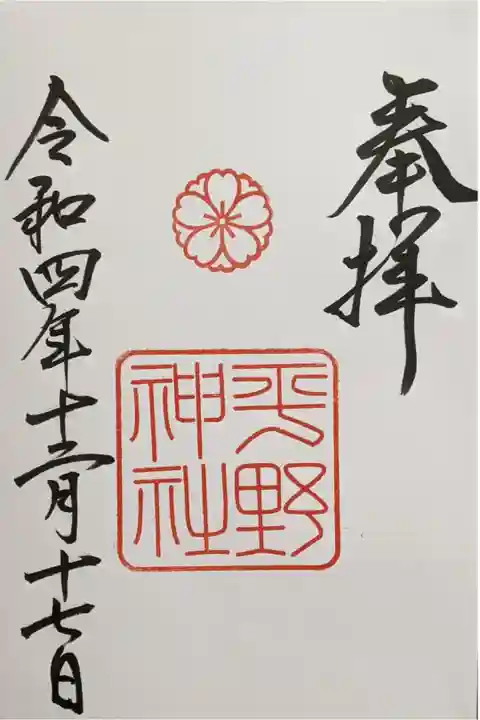 奉拝
平野
神社
令和四年十二月十七日